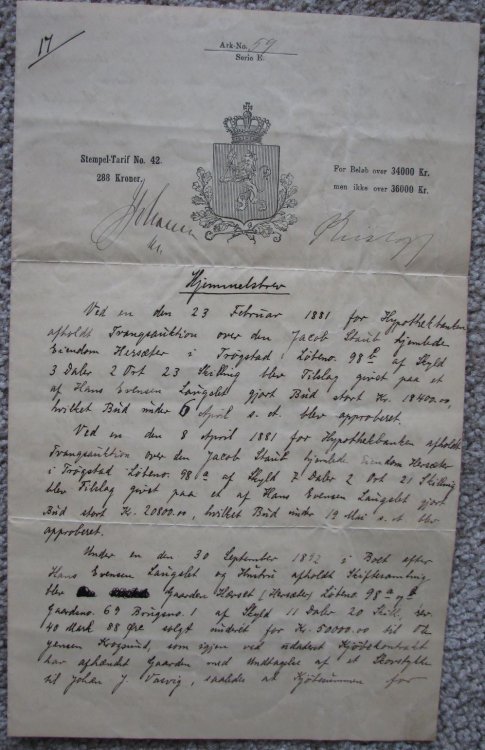 17
Ark-No. 59
Serie E.
Stempel-Tarif No. 42.
288 Kroner.
For Beløb over 34000 Kr.
men ikke over 36000 Kr.
Hjemmelsbrev
Ved en den 23 Februar 1881 for Hypothekbanken
afholdt Tvangsauktion over den Jacob Staub hjemlede
Eiendom Hersæter i Trøgstad, Løbeno. 98 b af Skyld
3 Daler 2 Ort 23 Skilling blev Tilslag givet paa et
af Hans Evensen Laugslet gjort Bud stort Kr. 18400.00,
hvilket Bud under 6 April s. A. blev approberet.
Ved en den 8 April 1881 for Hypothekbanken afholdt
Tvangsauktion over den Jacob Staub hjemlede Eiendom Hersæter
i Trøgstad Løbeno. 98 a af Skyld 7 Daler 2 Ort 21 Skilling
blev Tilslag givet paa et af Hans Evensen Laugslet gjort
Bud stort Kr. 20800.00, hvilket Bud under 19 Mai s. A. blev
approberet.
Under en den 30 September 1892 i Boet efter
Hans Evensen Laugslet og Hustru afholdt Skiftesamling
blev Gaarden Hærset (Hersæter) Løbeno. 98 a og b
Gaardsno. 69 Brugsno. 1 af Skyld 11 Daler 20 Skill.
40 Mark 88 Øre solgt for Kr. 50000.00 til
som igjen ved Kjøbekontrakt
har afhændet Gaarden med Undtagelse af et Skovstykke
til Johan J. saaledes at Kjøbesummen for